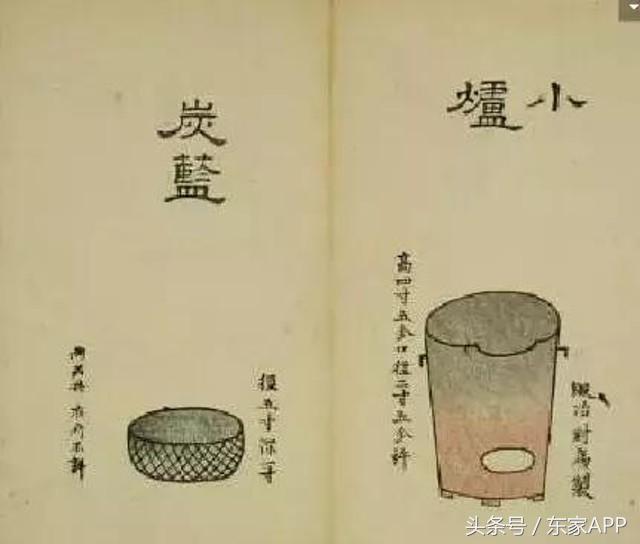 小爐
高四寸五分口徑二寸五分許
炭籃
徑五寸深二寸
头条号 / 东家APP